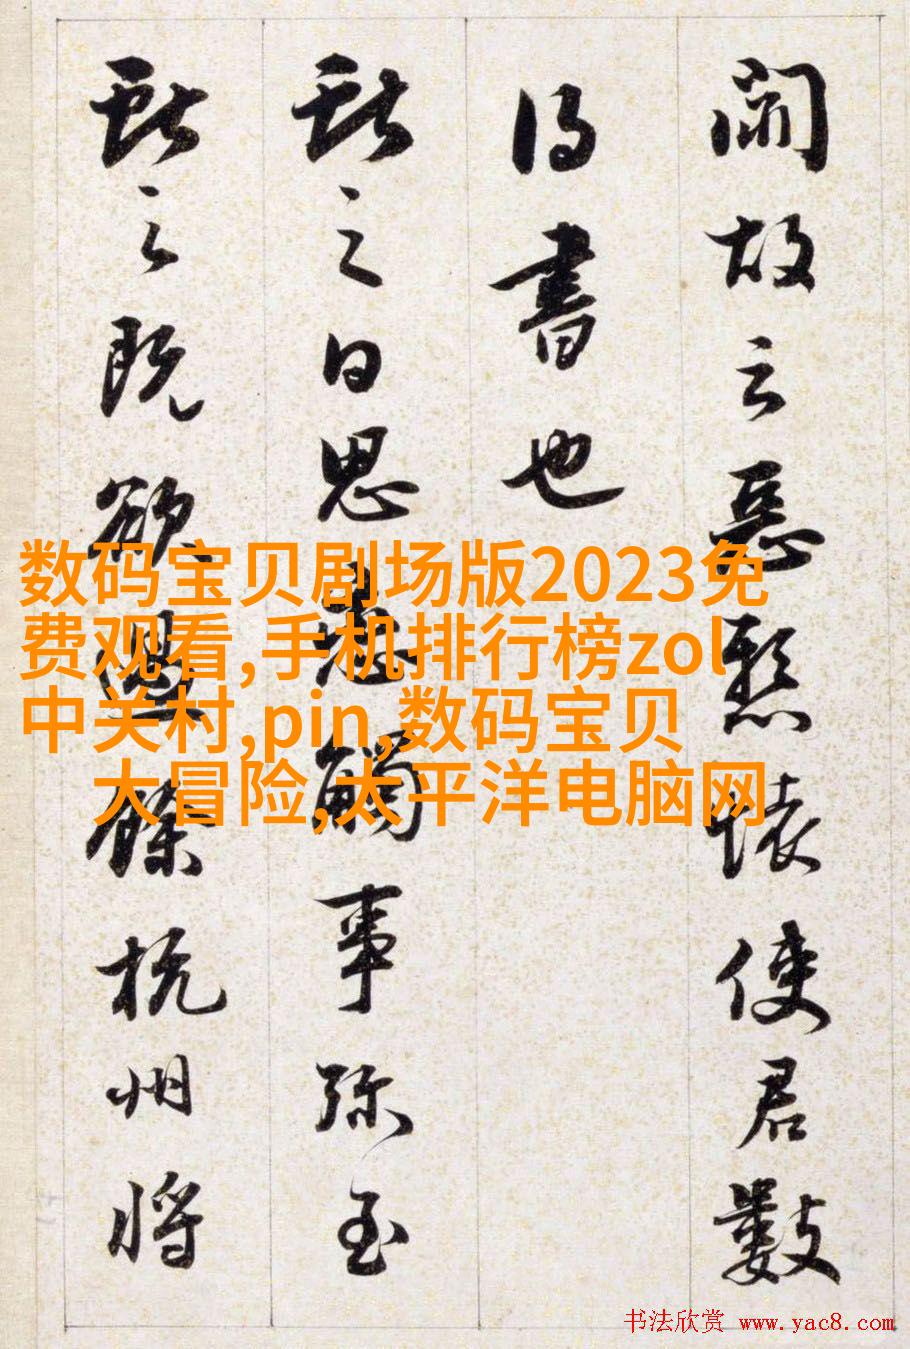 闹故云惡懃懐使君數
得書也
獣之日思愚觸事弥至
獣之既欲與餘杭州将
数码宝贝剧场版2023免
费观看,手机排行榜zol
中关村,pin,数码宝贝
大冒险,太平洋电脑网
书法欣赏 www.yac8.com